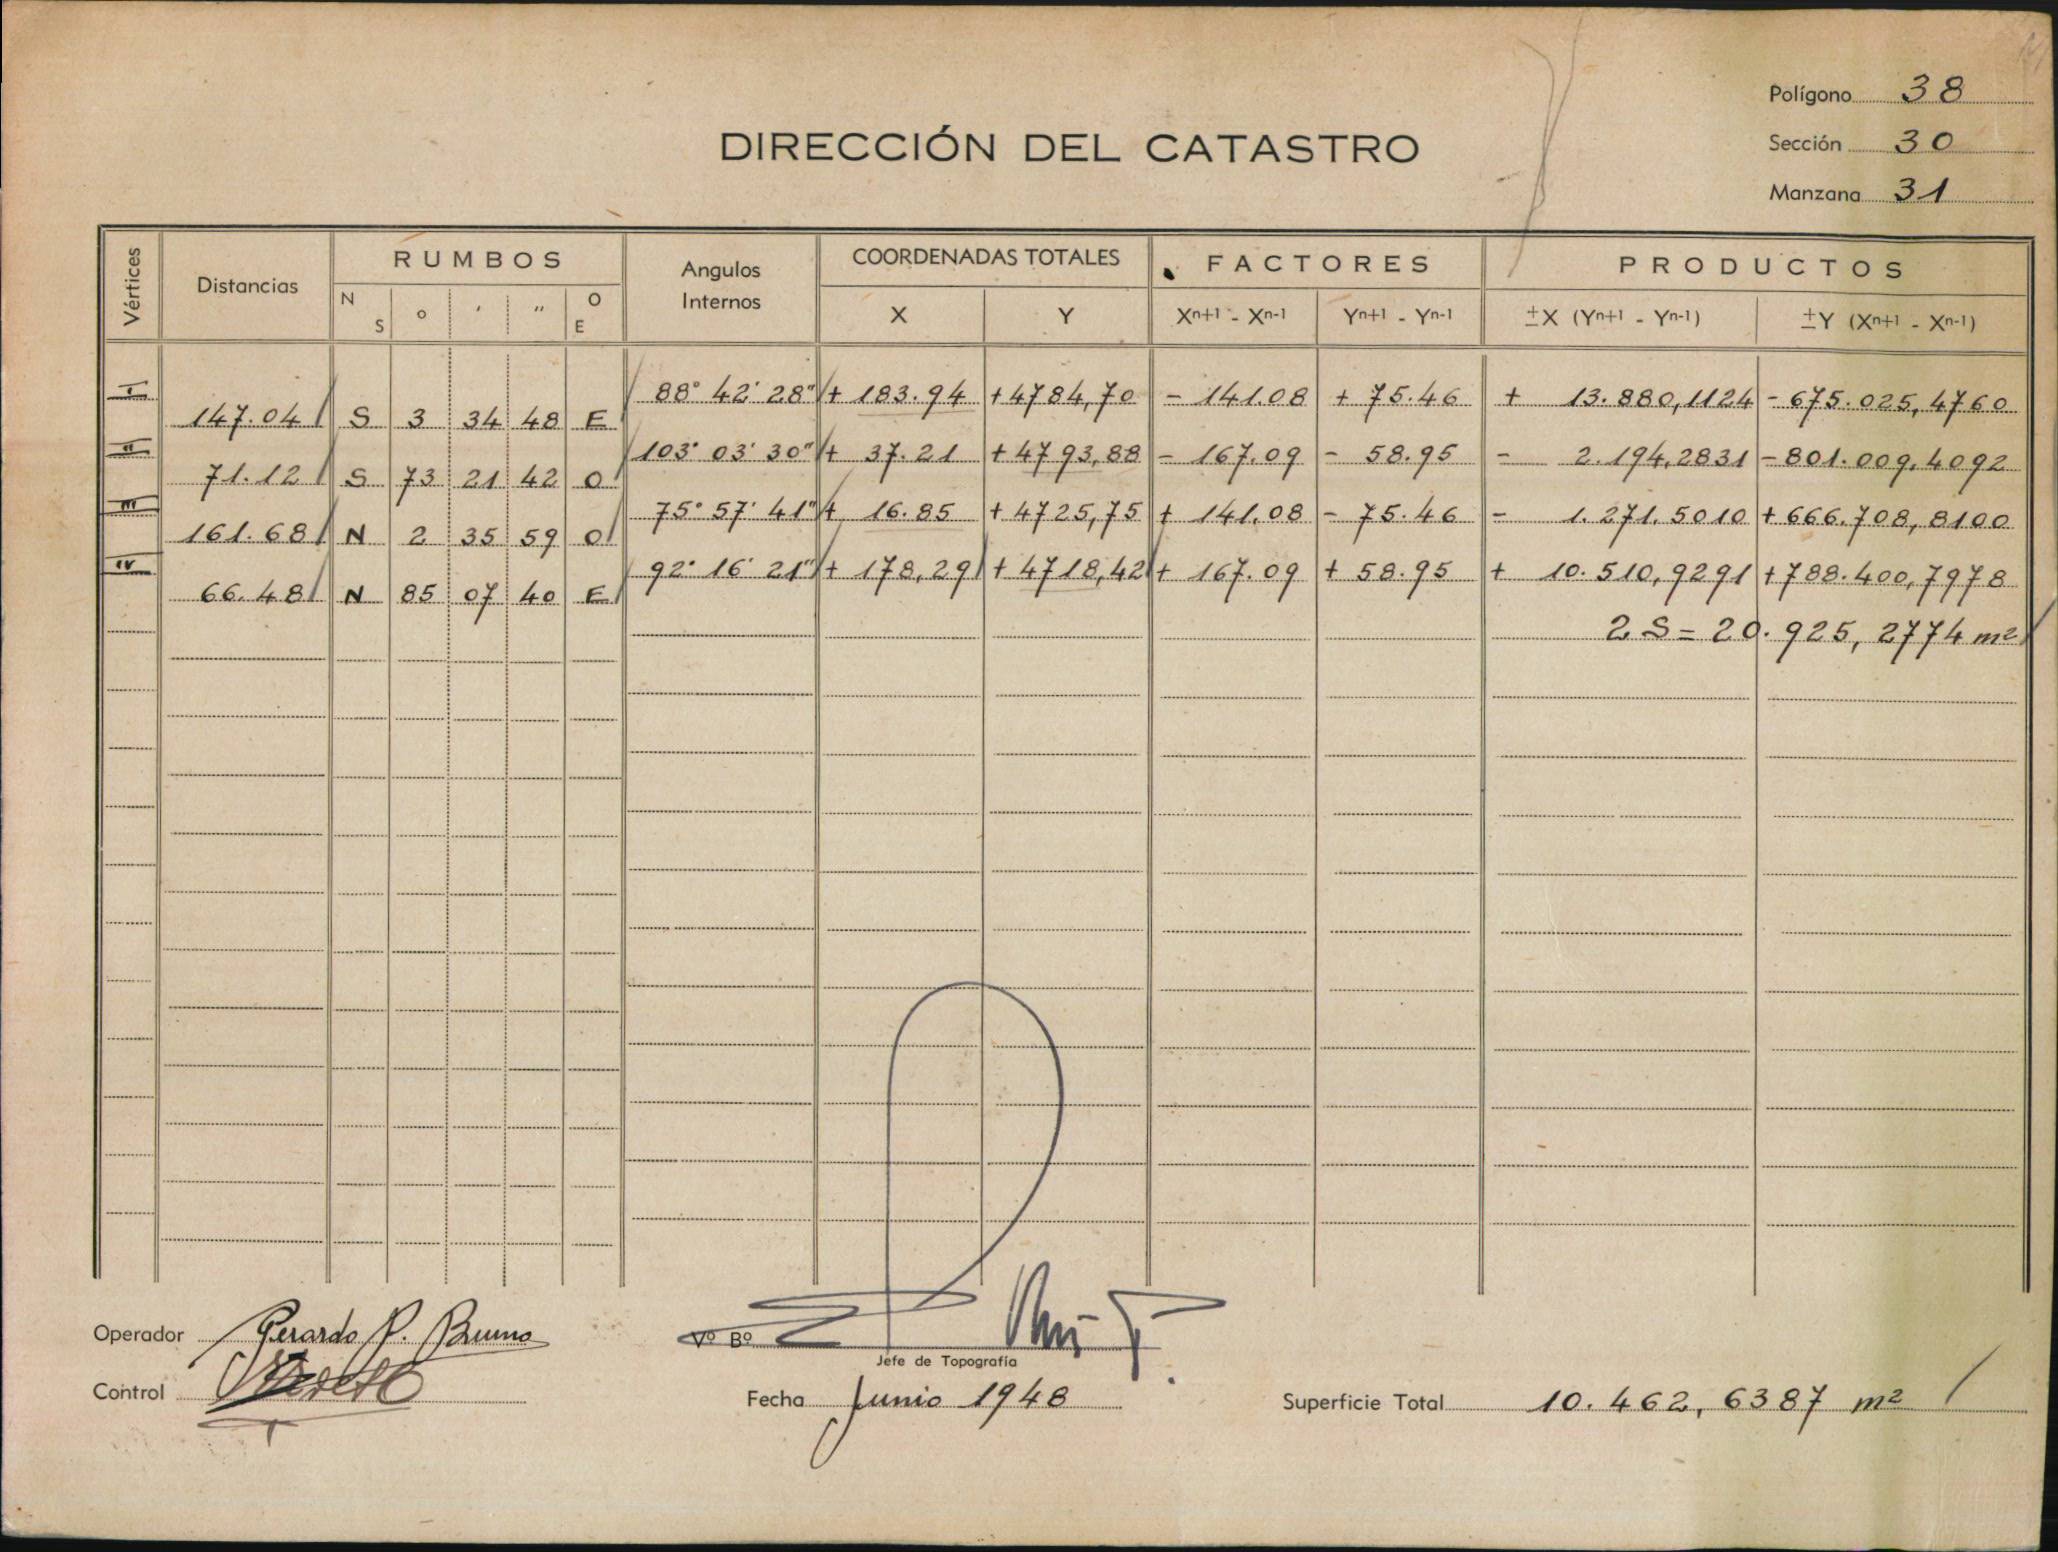 Polígono 38
DIRECCIÓN DEL CATASTRO
Sección 30
Manzana 31
Vértices Distancias RUMBOS Angulos Internos COORDENADAS TOTALES FACTORES PRODUCTOS
N S ° ′ ″ O E X Y Xn+1 - Xn-1 Yn+1 - Yn-1 ±X (Yn+1 - Yn-1) ±Y (Xn+1 - Xn-1)
I 88° 42' 28" + 183.94 +4784,70 - 141.08 + 75.46 + 13.880,1124 - 675.025,4760
147.04 S 3 34 48 E
II 103° 03' 30" + 37.21 + 4793,88 - 167.09 - 58.95 - 2.194,2831 - 801.009,4092
71.12 S 73 21 42 O
III 75° 57' 41" + 16.85 + 4725,75 + 141.08 - 75.46 - 1.271.5010 + 666.708,8100
161.68 N 2 35 59 O
IV 92° 16' 21" + 178,29 + 4718,42 + 167.09 + 58.95 + 10.510,9291 +788.400,7978
66.48 N 85 07 40 E
2 S = 20.925,2774 m2
Operador Gerardo P. Bruno
Vº Bº
Jefe de Topografía
Control
Fecha Junio 1948
Superficie Total 10.462,6387 m2